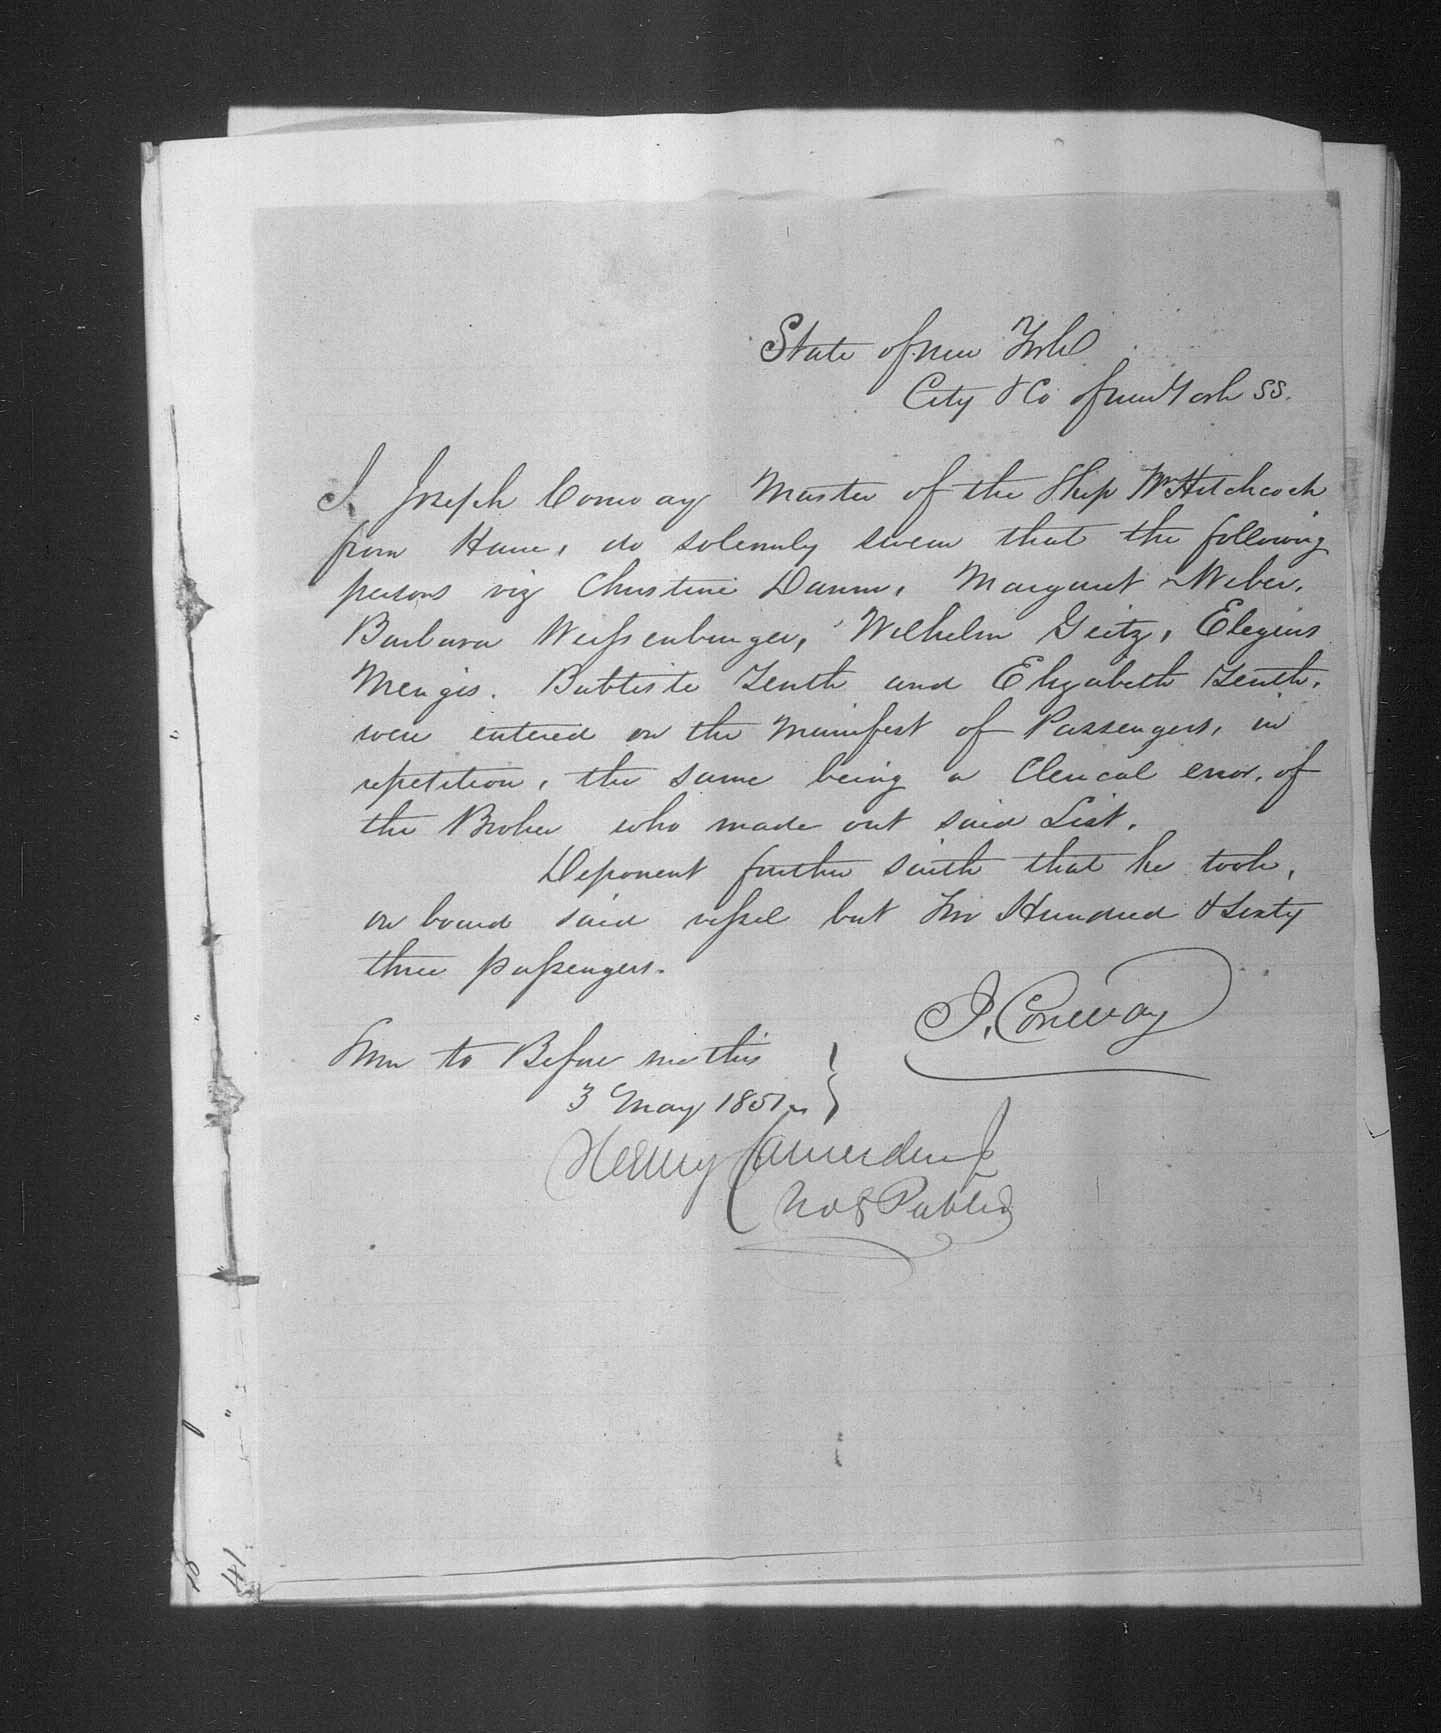 State of New York
City & Co of New York SS.
I, Joseph Conway Master of the Ship Wm Hitchcock
from Havre, do solemnly swear that the following
persons viz Christine Damm, Margaret Weber,
Barbara Weissenburger, Wilhelm Geitz, Elegius
Menges. Babtiste Zenth and Elizabeth Zenth.
were entered on the Manifest of Passengers, in
repetition, the same being a Clerical error, of
the Broker who made out said List.
Deponent further saith that he took,
on board said vessel but Two Hundred & Sixty
three passengers.
J. Conway
Sworn to Before me this
3 May 1851
Henry Camerden Jr
Not Public
41